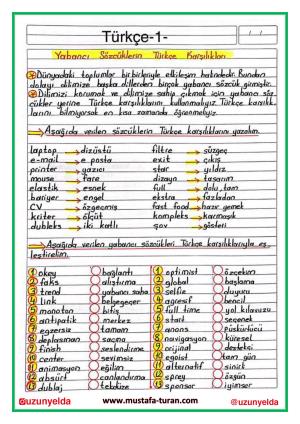 Türkçe-1-
Yabancı Sözcüklerin Türkçe Karşılıkları
Dünyadaki toplumlar birbirleriyle etkileşim halindedir. Bundan
dolayı dilimize başka dillerden birçok yabancı sözcük girmiştir.
Dilimizi korumak ve dilimize sahip çıkmak için yabancı söz
cükler yerine Türkçe karşılıklarını kullanmalıyız. Türkçe karşılık
larını bilmiyorsak en kısa zamanda öğrenmeliyiz.
Aşağıda verilen sözcüklerin Türkçe karşılıklarını yazalım.
laptop dizüstü filtre süzgeç
e-mail e posta exit çıkış
printer yazıcı star yıldız
mouse fare dizayn tasarım
elastik esnek full dolu, tam
bariyer engel ekstra fazladan
CV özgeçmiş fast food hazır yemek
kriter ölçüt kompleks karmaşık
dubleks iki katlı şov gösteri
Aşağıda verilen yabancı sözcükleri Türkçe karşılıklarıyla eş
leştirelim.
1 okey bağlantı 1 optimist özçekim
2 faks alıştırma 2 global başlama
3 trend yabancı saha 3 selfie duyuru
4 link belgegeçer 4 agresif bencil
5 monoton bitiş 5 full time yol kılavuzu
6 antipatik merkez 6 start seçenek
7 egzersiz tamam 7 anons püskürtücü
8 deplasman saçma 8 navigasyon küresel
9 finish seslendirme 9 orijinal destekçi
10 center sevimsiz 10 egoist tam gün
11 animasyon eğilim 11 alternatif sinirli
12 absürt canlandırma 12 sprey özgün
13 dublaj tekdüze 13 sponsor iyimser
@uzunyelda www.mustafa-turan.com @uzunyelda